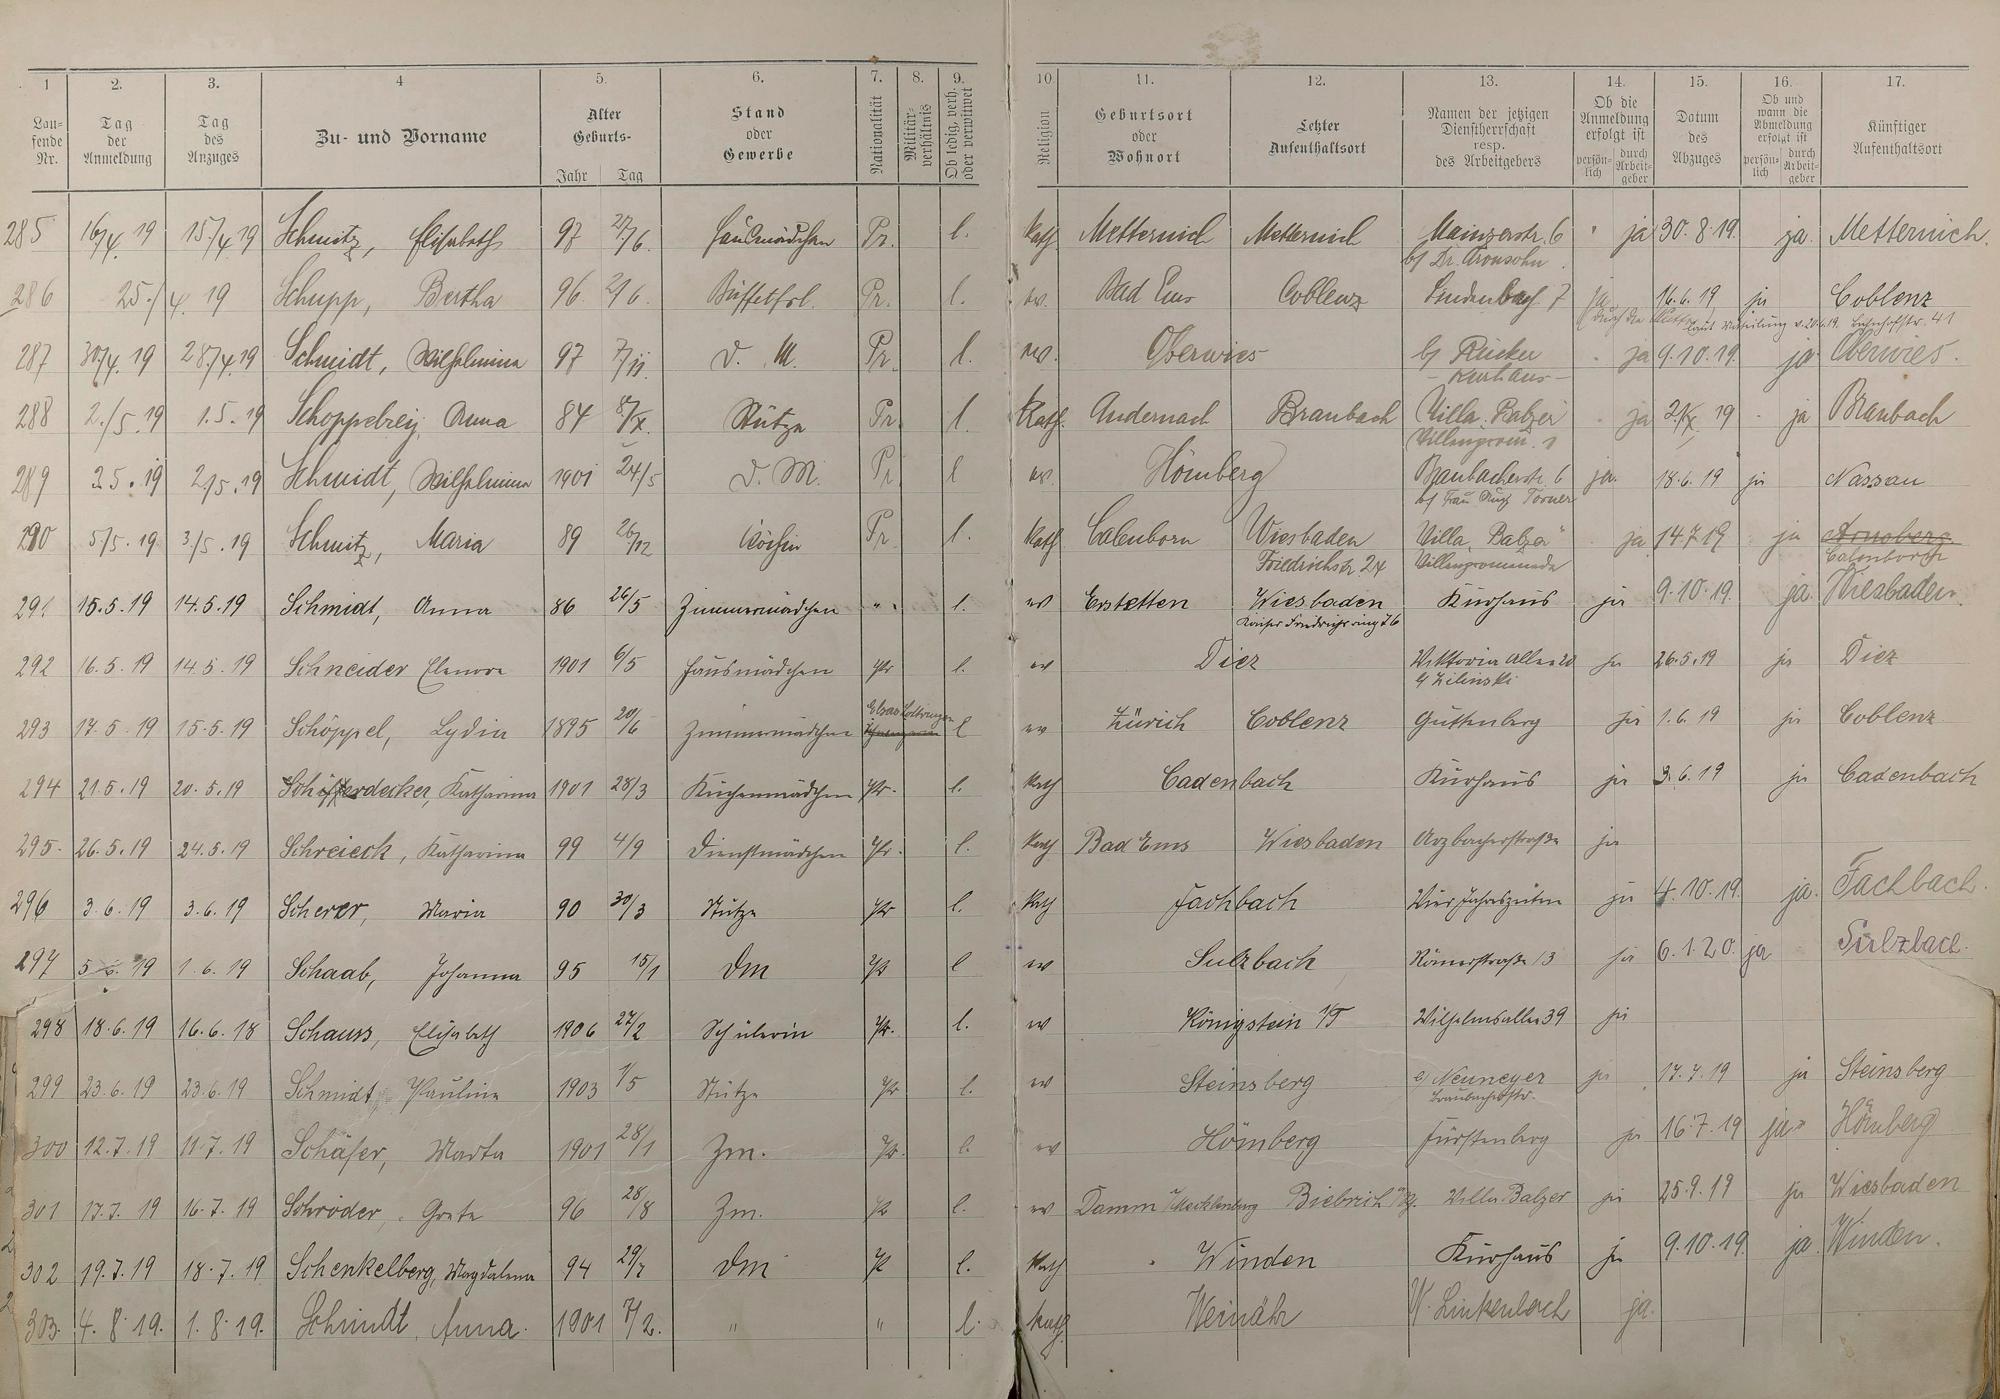 1 2. 3. 4 5. 6. 7. 8. 9. 10 11. 12. 13. 14. 15. 16. 17.
Lau-fende Nr. Tag der Anmeldung Tag des Anzuges Zu- und Vorname Alter Geburts- Jahr Tag Stand oder Gewerbe Nationalität Militär-verhältnis Ob ledig, verh. oder verwitwet Religion Geburtsort oder Wohnort Letzter Aufenthaltsort Namen der jetzigen Dienstherrschaft resp. des Arbeitgebers Ob die Anmeldung erfolgt ist persön-lich durch Arbeit-geber Datum des Abzuges Ob und wann die Abmeldung erfolgt ist persön-lich durch Arbeit-geber Künftiger Aufenthaltsort
285 16/4 19 15/4 19 Schmitz, Elisabeth 97 27/6. Hausmädchen Pr. l. Kath Metternich Metternich Mainzerstr. 6 ja 30.8.19. ja. Metternich.
b/ Dr. Aronsohn
286 25./4. 19 Schupp, Bertha 96. 2/6. Büffetfrl. Pr. l. ev. Bad Ems Coblenz Lindenbach 7 ja 16.6.19 ja Coblenz
laut Mitteilung v. 20.6.19. Bahnhofstr. 41
287 30/4. 19 28/4. 19 Schmidt, Wilhelmina 97 7/11. D. M. Pr. l. ev. Oberwies b/ Rücker ja 9.10.19. ja Oberwies.
- Kurhaus -
288 2./5. 19 1.5.19 Schoppebrey, Anna 84 8/X. Stütze Pr. l. Kath. Andernach Braubach Villa Balzer ja 2/X 19 ja Braubach
Villenprom. 1
289 2.5.19 2/5.19 Schmidt, Wilhelmina 1901 24/5 D. M. Pr. l ev. Hömberg Braubacherstr. 6 ja. 18.6.19 ja Nassau
b/ Frau
290 5/5.19 3./5.19 Schmitz, Maria 89 26/12 Köchin Pr. l. Kath Calenborn Wiesbaden Villa „Balzer“ ja 14.7.19 ja Arnsberg.
Friedrichstr 24 Villenpromenade Calenborn
291 15.5.19 14.5.19 Schmidt, Anna 86 26/5 Zimmermädchen " l. ev Erstetten Wiesbaden Kurhaus ja 9.10.19. ja. Wiesbaden.
Kaiser Friedrichring 76
292 16.5.19 14.5.19 Schneider Elenore 1901 6/5 Hausmädchen Pr l. ev Diez Viktoria Allee 20 ja 26.5.19 ja Diez
b/ Zilinski
293 17.5.19 15.5.19 Schöppel, Lydia 1895 20/6 Zimmermädchen Elsas Lothringen l ev Zürich Coblenz Guttenberg ja 1.6.19 ja Coblenz
294 21.5.19 20.5.19 Schifferdecker, Katharina 1901 28/3 Küchenmädchen Pr. l. Kath Cadenbach Kurhaus ja 3.6.19 ja Cadenbach
295. 26.5.19 24.5.19 Schreieck, Katharina 99 4/9 Dienstmädchen Pr. l. Kath Bad Ems Wiesbaden Arzbacherstraße ja
296 3.6.19 3.6.19 Scherer, Maria 90 30/3 Stütze Pr l. Kath Fachbach Vier Jahreszeiten ja 4.10.19. ja. Fachbach.
297 5.6.19 1.6.19 Schaab, Johanna 95 15/1 Dm Pr l ev Sulzbach Römerstraße 13 ja 6.1.20. ja Sulzbach.
298 18.6.19 16.6.18 Schauss, Elisabeth 1906 27/2 Schülerin Pr. l. ev Königstein i/T Wilhelmsallee 39 ja
299 23.6.19 23.6.19 Schmidt, Pauline 1903 1/5 Stütze Pr l. ev Steinsberg b/ Neumeyer ja 17.7.19 ja Steinsberg
Braubacherstr.
300 12.7.19 11.7.19 Schäfer, Marta 1901 28/1 Zm. Pr. l. ev Hömberg Fürstenberg ja 16.7.19 ja Hömberg
301 17.7.19 16.7.19 Schröder, Grete 96 28/8 Zm. Pr l. ev Damm i/Mecklenburg Biebrich Villa Balzer ja 25.9.19 ja Wiesbaden
302 19.7.19 18.7.19 Schenkelberg, Magdalena 94 29/7 Dm Pr l. Kath Winden Kurhaus ja 9.10.19. ja. Winden.
303. 4.8.19. 1.8.19. Schmidt, Anna. 1901 7/2. " " l. Kath. Weinähr W. Linkenbach ja.